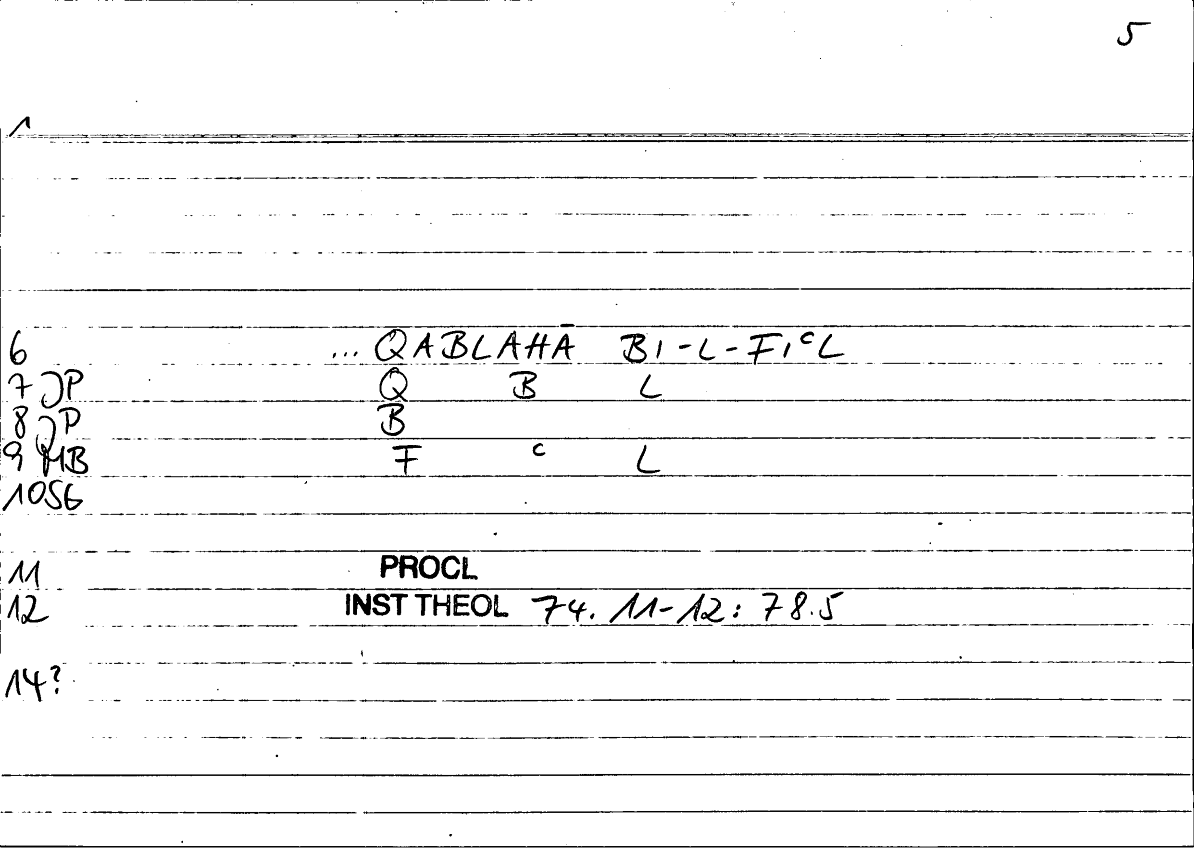 5
1
6 ... QABLAHĀ BI-L-FIᶜL
7 JP Q B L
8 JP B
9 MB F ᶜ L
10 SG
11 PROCL
12 INST THEOL 74. 11-12: 78.5
14?